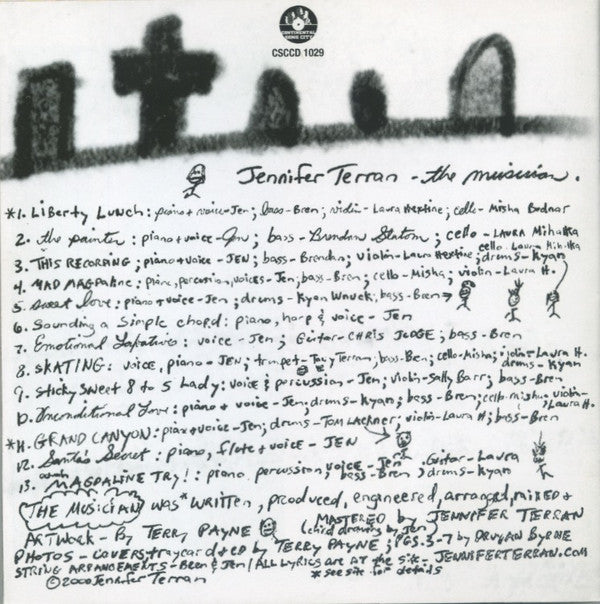 CONTINENTAL
SONG CITY
CSCCD 1029
Jennifer Terran - the musician.
*1. Liberty Lunch: piano + voice-Jen; bass-Bren; violin-Laura Hertine; cello-Misha Bodnar
2. the painter: piano + voice-Jen; bass-Brendan Statom; cello-LAURA Mihalka
3. THIS RECORDING; piano + voice-JEN; bass-Brendan; violin-Laura Hertine; drums-Kyan
cello-Laura Mihalka
4. MAD MAGDALINE: piano, percussion, voices-Jen; bass-Bren; cello-Misha; violin-Laura H.
5. sweet love: piano + voice-Jen; drums-Kyan Wnuck; bass-Bren
6. Sounding a Simple chord: piano, harp & voice-Jen
7. Emotional Laxatives: voice-Jen; Guitar-CHRIS JUDGE; bass-Bren
8. SKATING: voice, piano-JEN; trumpet-Tony Terran; bass-Bren; cello-Misha; violin-Laura H.
drums-Kyan
9. Sticky Sweet 8 to 5 Lady: voice & percussion-Jen; violin-Sally Barr; bass-Bren
10. Unconditional Love: piano + voice-Jen; drums-Kyan; bass-Bren; cello-misha; violin-
Laura H.
*11. GRAND CANYON: piano + voice-Jen; drums-TOM LACKNER; violin-Laura H; bass-Bren
12. Santa's Secret: piano, flute + voice-JEN
13. MAGDALINE TRY!: piano percussion, voice-Jen Guitar-Laura
bass-Bren; drums-Kyan
THE MUSICIAN was *written, produced, engineered, arranged, mixed +
MASTERED by JENNIFER TERRAN
ARTWORK - By TERRY PAYNE (child drawings by Jen)
PHOTOS - COVERS + traycard + cd by TERRY PAYNE; PGS. 3-7 by DRUYAN BYRNE
STRING ARRANGEMENTS - Bren & Jen / ALL LYRICS are AT the site - JENNIFERTERRAN.com
©2000 Jennifer Terran *see site for details